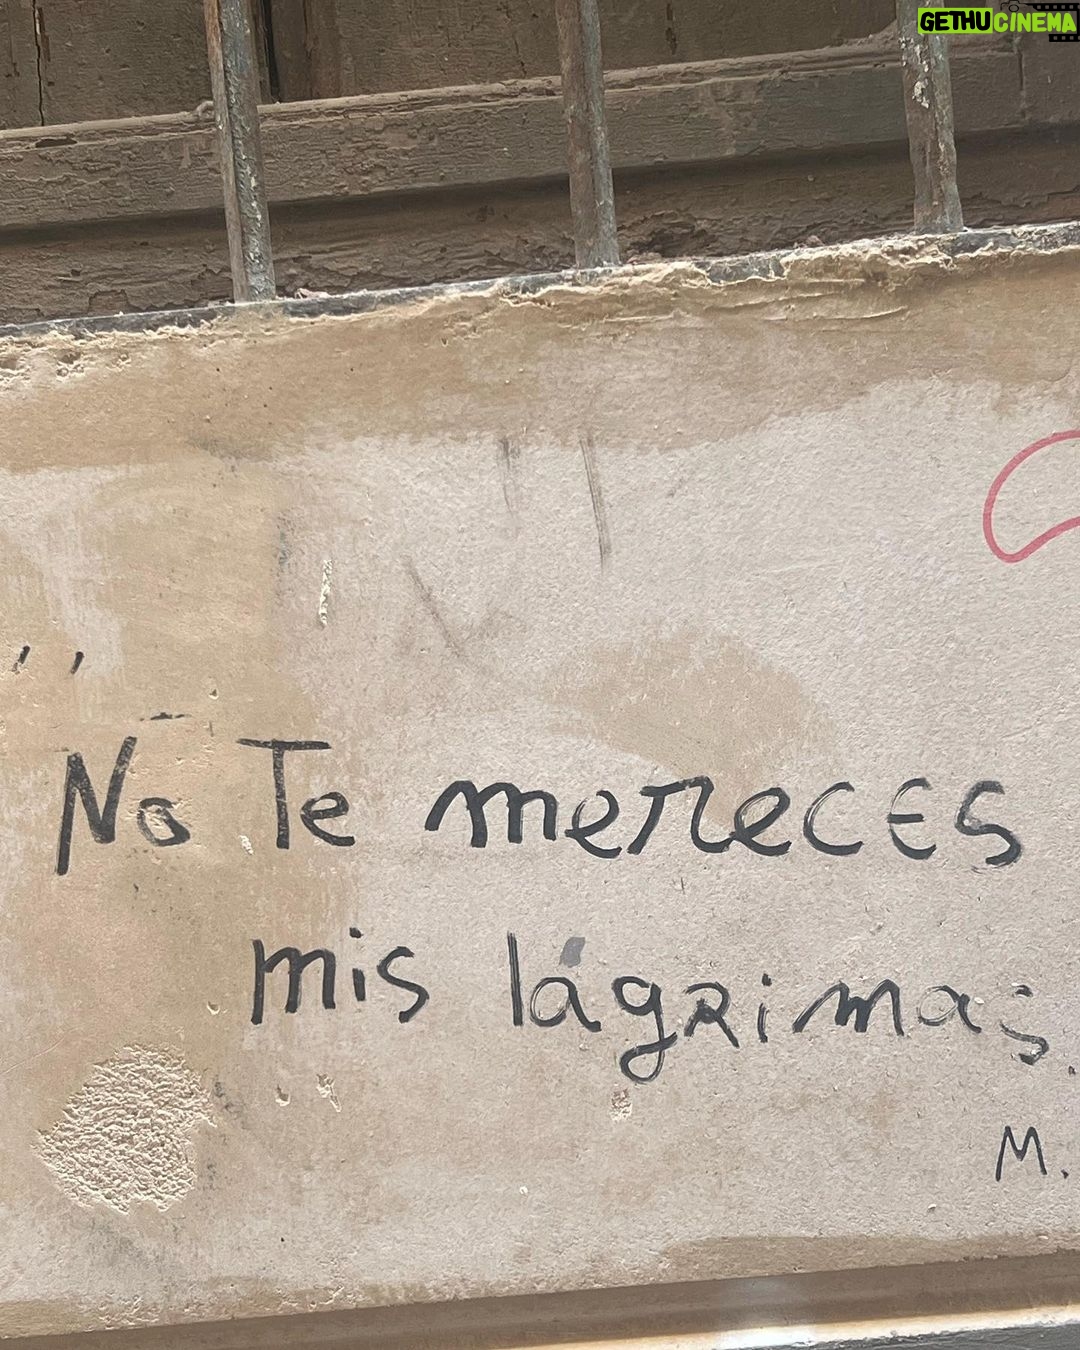 GETHUCINEMA
''
No Te mereces
mis lágrimas.
M.